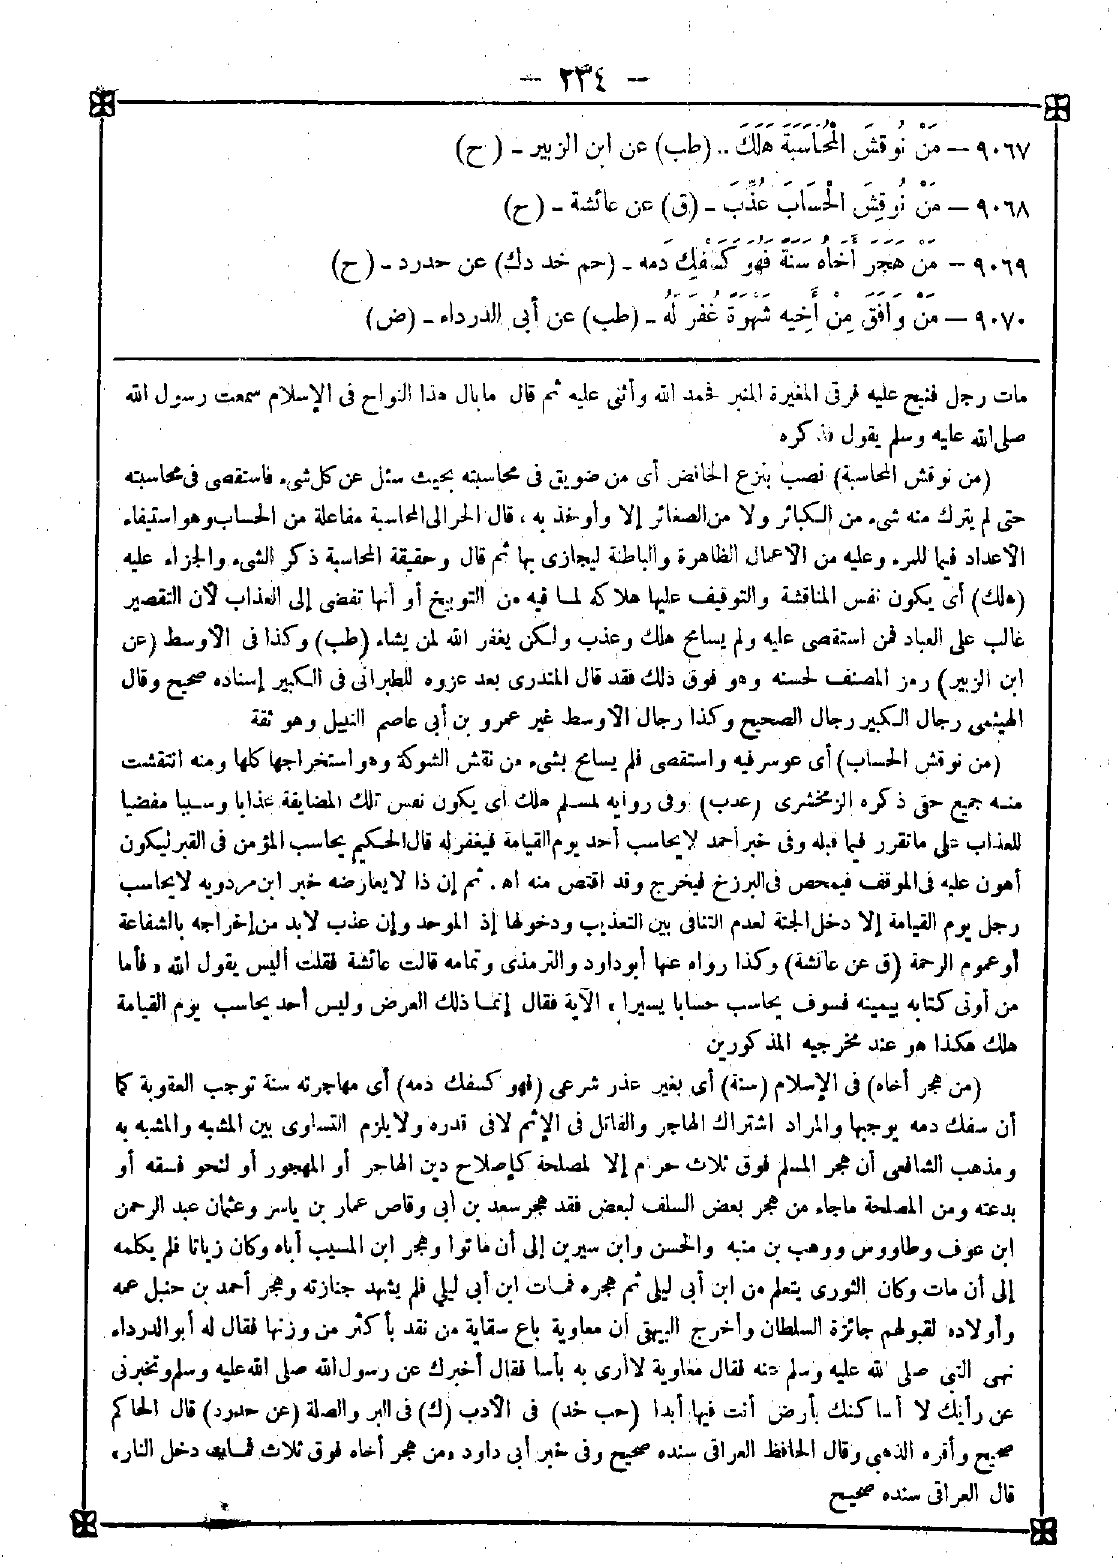 - ٢٣٤ -
٩٠٦٧ - مَنْ نُوقِشَ الْمُحَاسَبَةَ هَلَكَ .. (طب) عن ابن الزبير - (ح)
٩٠٦٨ - مَنْ نُوقِشَ الْحِسَابَ عُذِّبَ - (ق) عن عائشة - (ح)
٩٠٦٩ - مَنْ هَجَرَ أَخَاهُ سَنَةً فَهُوَ كَسَفْكِ دَمِهِ - (حم خد دك) عن حدرد - (ح)
٩٠٧٠ - مَنْ وَافَقَ مِنْ أَخِيهِ شَهْوَةً غُفِرَ لَهُ - (طب) عن أبى الدرداء - (ض)
مات رجل فنيح عليه فرقى المغيرة المنبر فحمد الله وأثنى عليه ثم قال مابال هذا النواح فى الإسلام سمعت رسول الله
صلى الله عليه وسلم يقول فذكره
(من نوقش المحاسبة) نصب بنزع الخافض أى من ضويق فى محاسبته بحيث سئل عن كل شىء فاستقصى فى محاسبته
حتى لم يترك منه شىء من الكبائر ولا من الصغائر إلا وأوخذ به ، قال الحرالى المحاسبة مفاعلة من الحساب وهو استيفاء
الاعداد فيما للمرء وعليه من الاعمال الظاهرة والباطنة ليجازى بها ثم قال وحقيقة المحاسبة ذكر الشىء والجزاء عليه
(هلك) أى يكون نفس المناقشة والتوقيف عليها هلاكه لما فيه من التوبيخ أو أنها تفضى إلى العذاب لأن التقصير
غالب على العباد فمن استقصى عليه ولم يسامح هلك وعذب ولكن يغفر الله لمن يشاء (طب) وكذا فى الأوسط (عن
ابن الزبير) رمز المصنف لحسنه وهو فوق ذلك فقد قال المنذرى بعد عزوه للطبرانى فى الكبير إسناده صحيح وقال
الهيثمى رجال الكبير رجال الصحيح وكذا رجال الأوسط غير عمرو بن أبى عاصم النبيل وهو ثقة
(من نوقش الحساب) أى عوسر فيه واستقصى فلم يسامح بشىء من نقش الشوكة وهو استخراجها كلها ومنه انتقشت
منه جميع حقى ذكره الزمخشرى (عذب) وفى رواية لمسلم هلك أى يكون نفس تلك المضايقة عذابا وسببا مفضيا
للعذاب على ماتقرر فيما قبله وفى خبر أحمد لايحاسب أحد يوم القيامة فيغفر له قال الحكيم يحاسب المؤمن فى القبر ليكون
أهون عليه فى الموقف فيمحص فى البرزخ فيخرج وقد اقتص منه اه. ثم إن ذا لايعارضه خبر ابن مردويه لايحاسب
رجل يوم القيامة إلا دخل الجنة لعدم التنافى بين التعذيب ودخولها إذ الموحد وإن عذب لابد من إخراجه بالشفاعة
أو عموم الرحمة (ق عن عائشة) وكذا رواه عنها أبو داود والترمذى وتمامه قالت عائشة فقلت أليس يقول الله ، فأما
من أوتى كتابه بيمينه فسوف يحاسب حسابا يسيرا ، الآية فقال إنما ذلك العرض وليس أحد يحاسب يوم القيامة
هلك هكذا هو عند مخرجيه المذكورين
(من هجر أخاه) فى الإسلام (سنة) أى بغير عذر شرعى (فهو كسفك دمه) أى مهاجرته سنة توجب العقوبة كما
أن سفك دمه يوجبها والمراد اشتراك الهاجر والقاتل فى الإثم لافى قدره ولا يلزم التساوى بين المشبه والمشبه به
ومذهب الشافعى أن هجر المسلم فوق ثلاث حرام إلا لمصلحة كإصلاح دين الهاجر أو المهجور أو لنحو فسقه أو
بدعته ومن المصلحة ماجاء من هجر بعض السلف لبعض فقد هجر سعد بن أبى وقاص عمار بن ياسر وعثمان عبد الرحمن
ابن عوف وطاووس ووهب بن منبه والحسن وابن سيرين إلى أن ماتوا وهجر ابن المسيب أباه وكان زياتا فلم يكلمه
إلى أن مات وكان الثورى يتعلم من ابن أبى ليلى ثم هجره فمات ابن أبى ليلى فلم يشهد جنازته وهجر أحمد بن حنبل عمه
وأولاده لقبولهم جائزة السلطان وأخرج البيهقى أن معاوية باع سقاية من نقد بأكثر من وزنها فقال له أبو الدرداء
نهى النبى صلى الله عليه وسلم عنه فقال معاوية لاأرى به بأسا فقال أخبرك عن رسول الله صلى الله عليه وسلم وتخبرنى
عن رأيك لا أساكنك بأرض أنت فيها أبدا (حب خد) فى الأدب (ك) فى البر والصلة (عن حدرد) قال الحاكم
صحيح وأقره الذهبى وقال الحافظ العراقى سنده صحيح وفى خبر أبى داود ،من هجر أخاه فوق ثلاث فمات دخل النار،
قال العراقى سنده صحيح